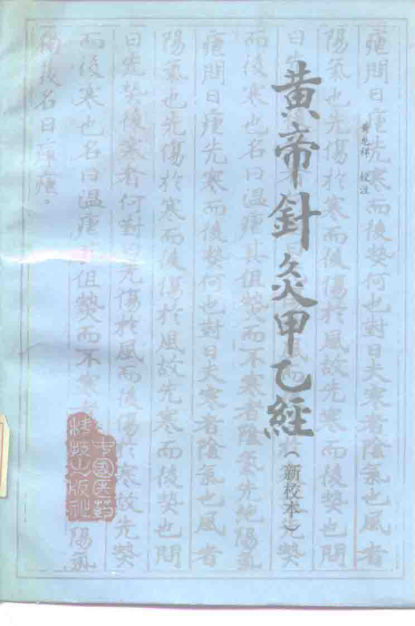 黄帝針灸甲乙經
（新校本）
黄龙祥 校注
瘧問曰瘧先寒而後熱何也對曰夫寒者陰氣也風者
陽氣也先傷於寒而後傷於風故先寒而後熱也問
曰先
熱
而後寒也名曰溫瘧其但熱而不寒者陰氣先絕陽氣
瘧問曰瘧先寒而後熱何也對曰夫寒者陰氣也風者
陽氣也先傷於寒而後傷於風故先寒而後熱也問
曰先熱後寒者何對曰先傷於風而後傷於寒故先熱
而後寒也名曰溫瘧其但熱而不寒者
陽氣
故名曰癉瘧。
中国医药
科技出版社